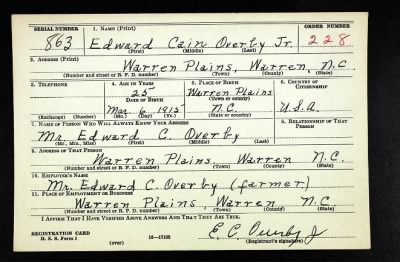 SERIAL NUMBER 1. NAME (Print) ORDER NUMBER
863 Edward Cain Overby Jr. 228
(First) (Middle) (Last)
2. ADDRESS (Print)
Warren Plains, Warren, N.C
(Number and street or R. F. D. number) (Town) (County) (State)
3. TELEPHONE 4. AGE IN YEARS 5. PLACE OF BIRTH 6. COUNTRY OF CITIZENSHIP
25 Warren Plains
DATE OF BIRTH (Town or county)
Mar. 6 1915 N.C. U.S.A.
(Exchange) (Number) (Mo.) (Day) (Yr.) (State or country)
7. NAME OF PERSON WHO WILL ALWAYS KNOW YOUR ADDRESS 8. RELATIONSHIP OF THAT PERSON
Mr. Edward C. Overby
(Mr., Mrs., Miss) (First) (Middle) (Last)
9. ADDRESS OF THAT PERSON
Warren Plains, Warren N.C.
(Number and street or R. F. D. number) (Town) (County) (State)
10. EMPLOYER'S NAME
Mr. Edward C. Overby (farmer)
11. PLACE OF EMPLOYMENT OR BUSINESS
Warren Plains, Warren N.C.
(Number and street or R. F. D. number) (Town) (County) (State)
I AFFIRM THAT I HAVE VERIFIED ABOVE ANSWERS AND THAT THEY ARE TRUE.
REGISTRATION CARD
D. S. S. Form 1 (over) 16-17105 E. C. Overby Jr
(Registrant's signature)